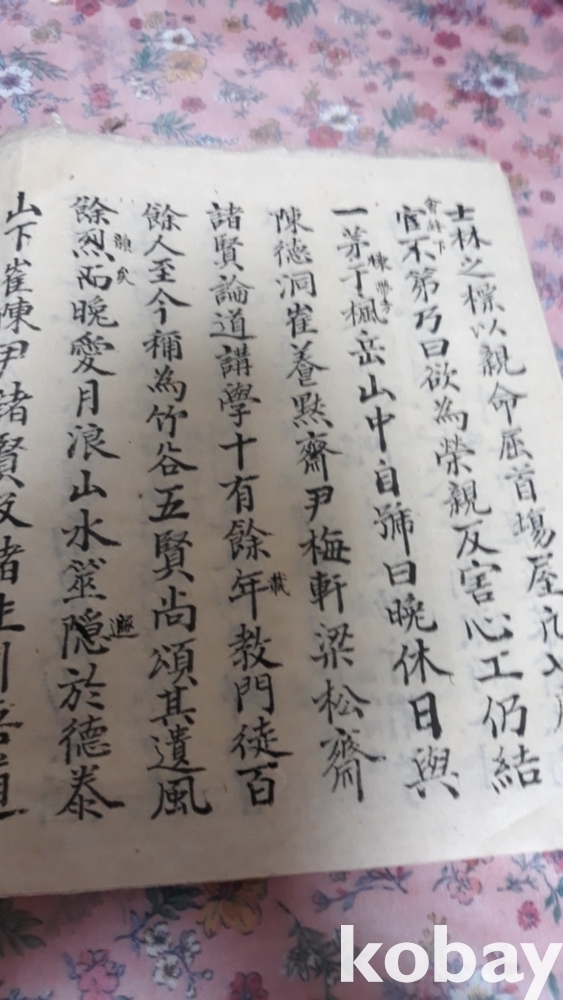 士林之標以親命屈首場屋
官不第乃曰欲為榮親反害心工仍結
會外下
一茅于楓岳山中自號曰晩休日與
陳德洞崔養黙齋尹梅軒梁松齋
諸賢論道講學十有餘年教門徒百
載
餘人至今稱為竹谷五賢尚頌其遺風
餘烈而晩愛月浪山水筮隱於德泰
韻矣
遯
山下崔陳尹諸賢及諸生
kobay